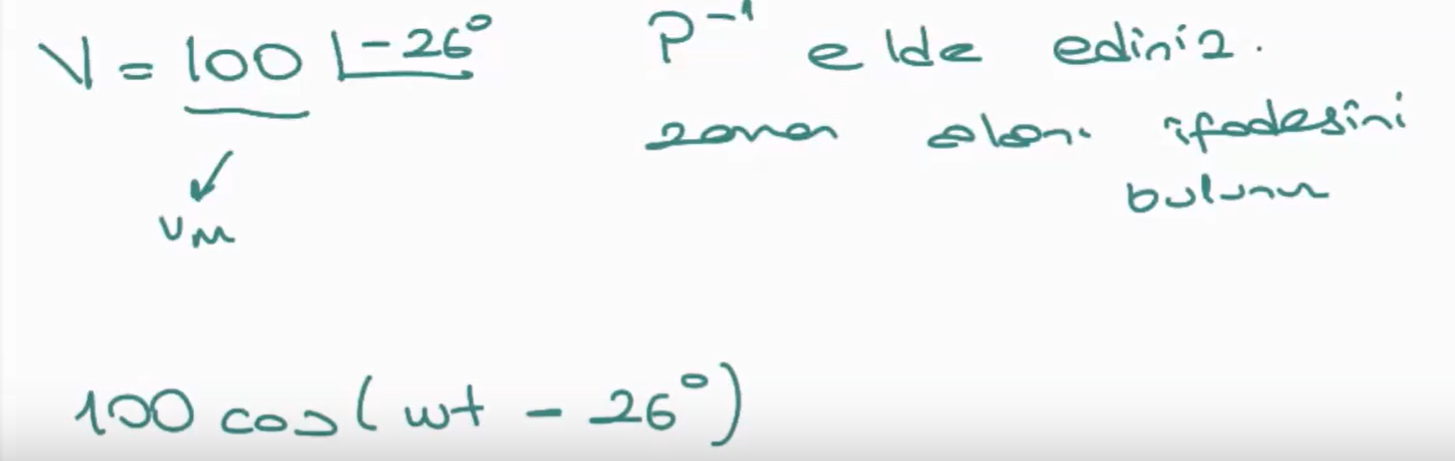 V = 100 ∠-26°
P⁻¹ elde ediniz.
zaman alanı ifadesini
bulunur
Vm
100 cos(wt - 26°)